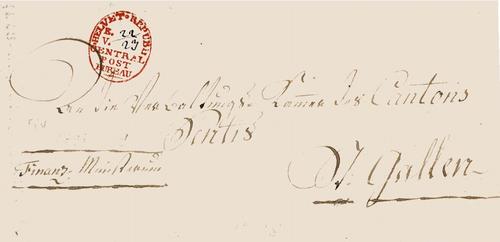 HELVET. REPUBL
B. 22
V. 23
CENTRAL
POST
BUREAU
An die Verwaltungs-Kammer des Cantons
Sentis
Finanz-Ministerium
St. Gallen